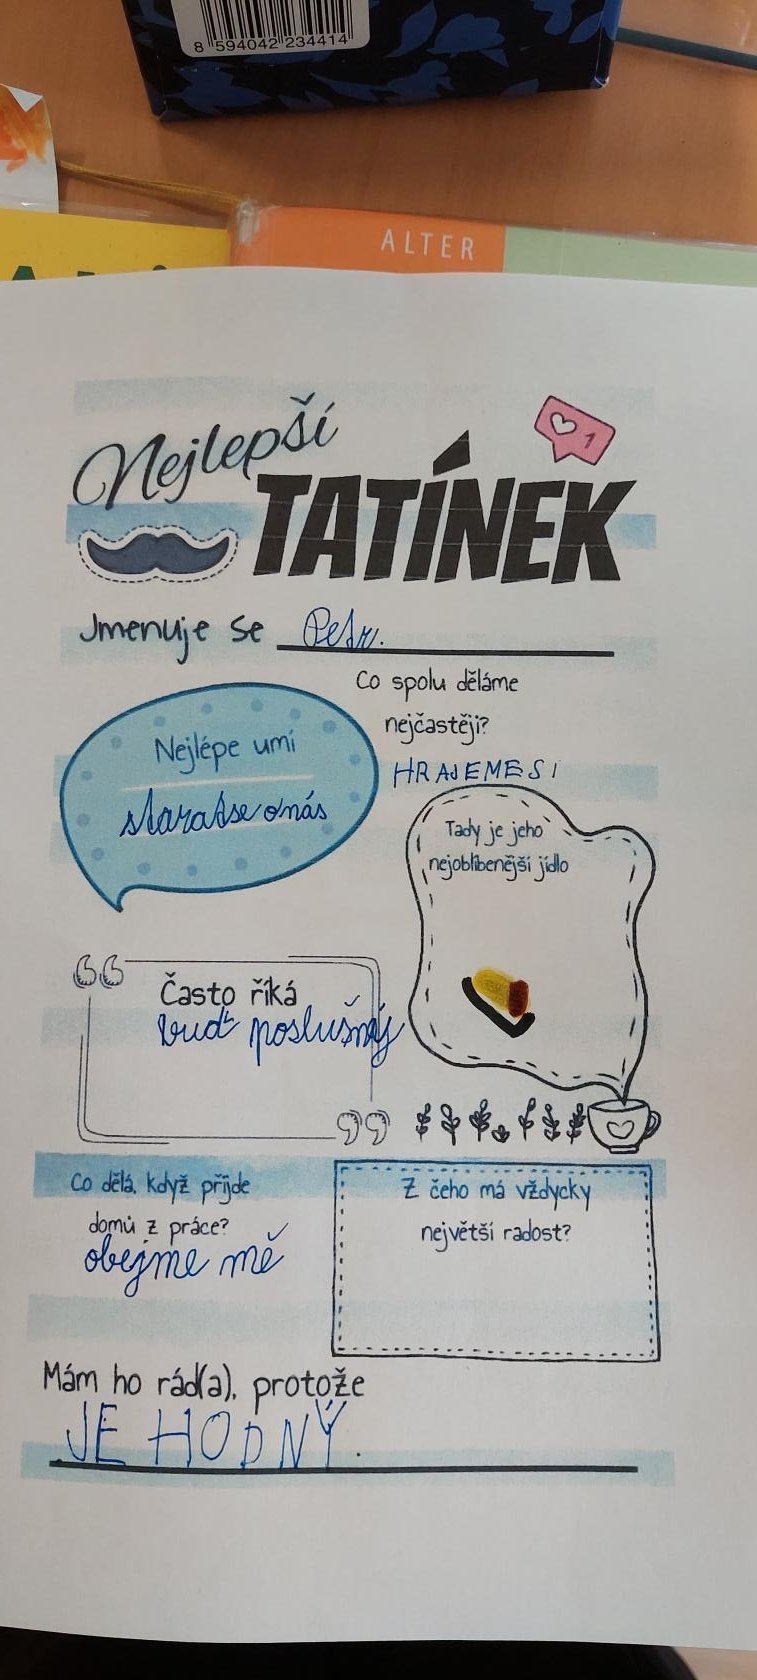 8 594042 234414
ALTER
Nejlepší
1
TATÍNEK
Jmenuje se Petr.
Co spolu děláme
nejčastěji?
HRAJEMESI
Nejlépe umí
staratse onás
Tady je jeho
nejoblíbenější jídlo
Často říká
buď poslušnáj
Co dělá, když přijde
domů z práce?
obejme mě
Z čeho má vždycky
největší radost?
Mám ho rád(a), protože
JE HODNÝ.